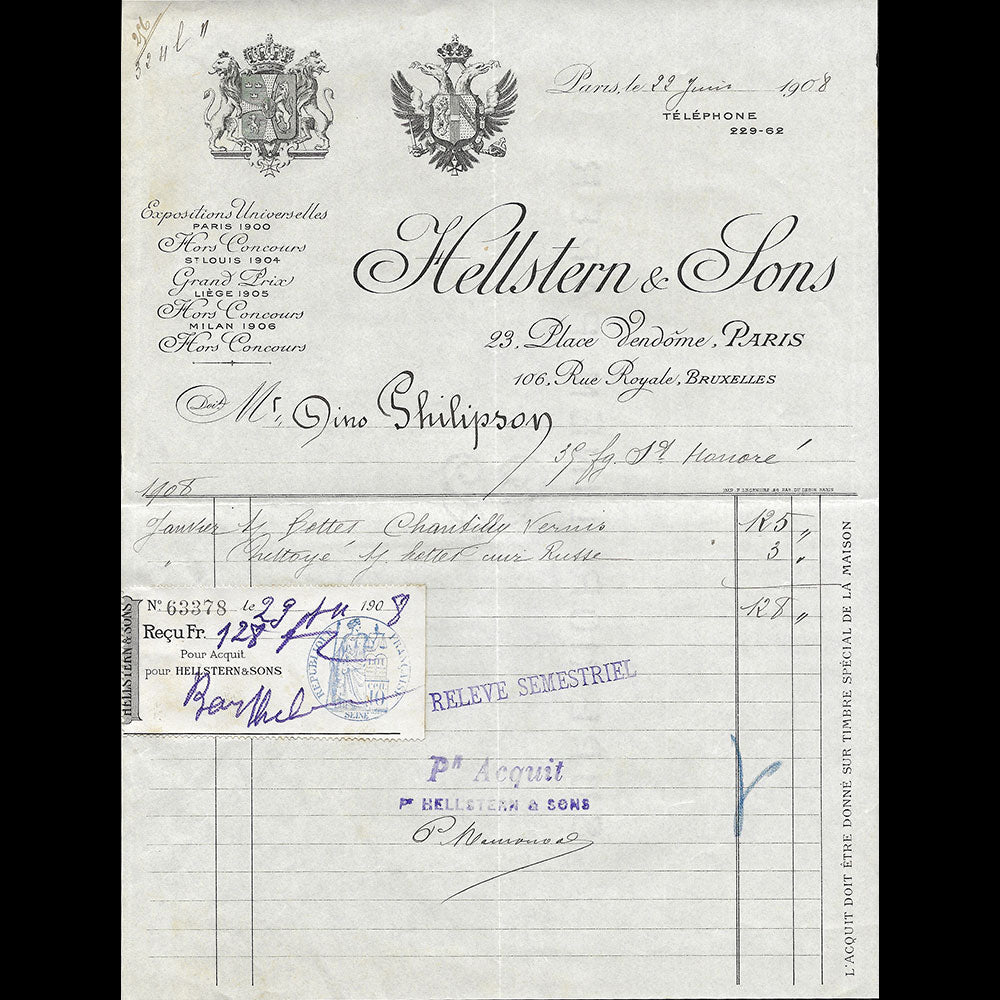 Paris, le 22 Juin 1908
TÉLÉPHONE
229-62
Expositions Universelles
PARIS 1900
Hors Concours
ST LOUIS 1904
Grand Prix
LIÈGE 1905
Hors Concours
MILAN 1906
Hors Concours
Hellstern & Sons
23, Place Vendôme, PARIS
106, Rue Royale, BRUXELLES
Doit Mr. Dino Philipson
35 fg. St Honoré
1908
Janvier 1/ Bottes Chantilly Vernis 125 "
" Nettoyé 1/ bottes cuir Russe 3 "
128 "
HELLSTERN & SONS
No 63378 le 29 1908
Reçu Fr. 128
Pour Acquit
pour HELLSTERN & SONS
RÉPUBLIQUE FRANÇAISE
SEINE
RELEVE SEMESTRIEL
Pr Acquit
Pr HELLSTERN & SONS
L'ACQUIT DOIT ÊTRE DONNÉ SUR TIMBRE SPÉCIAL DE LA MAISON